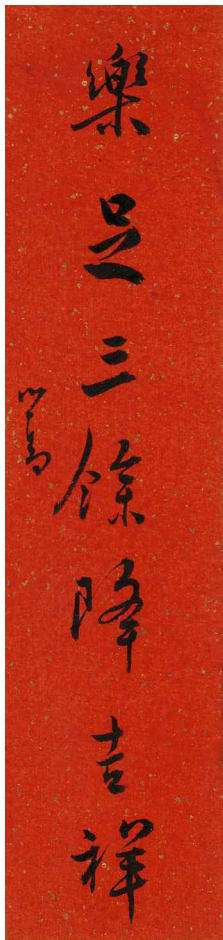 樂足三餘降吉祥
心畬